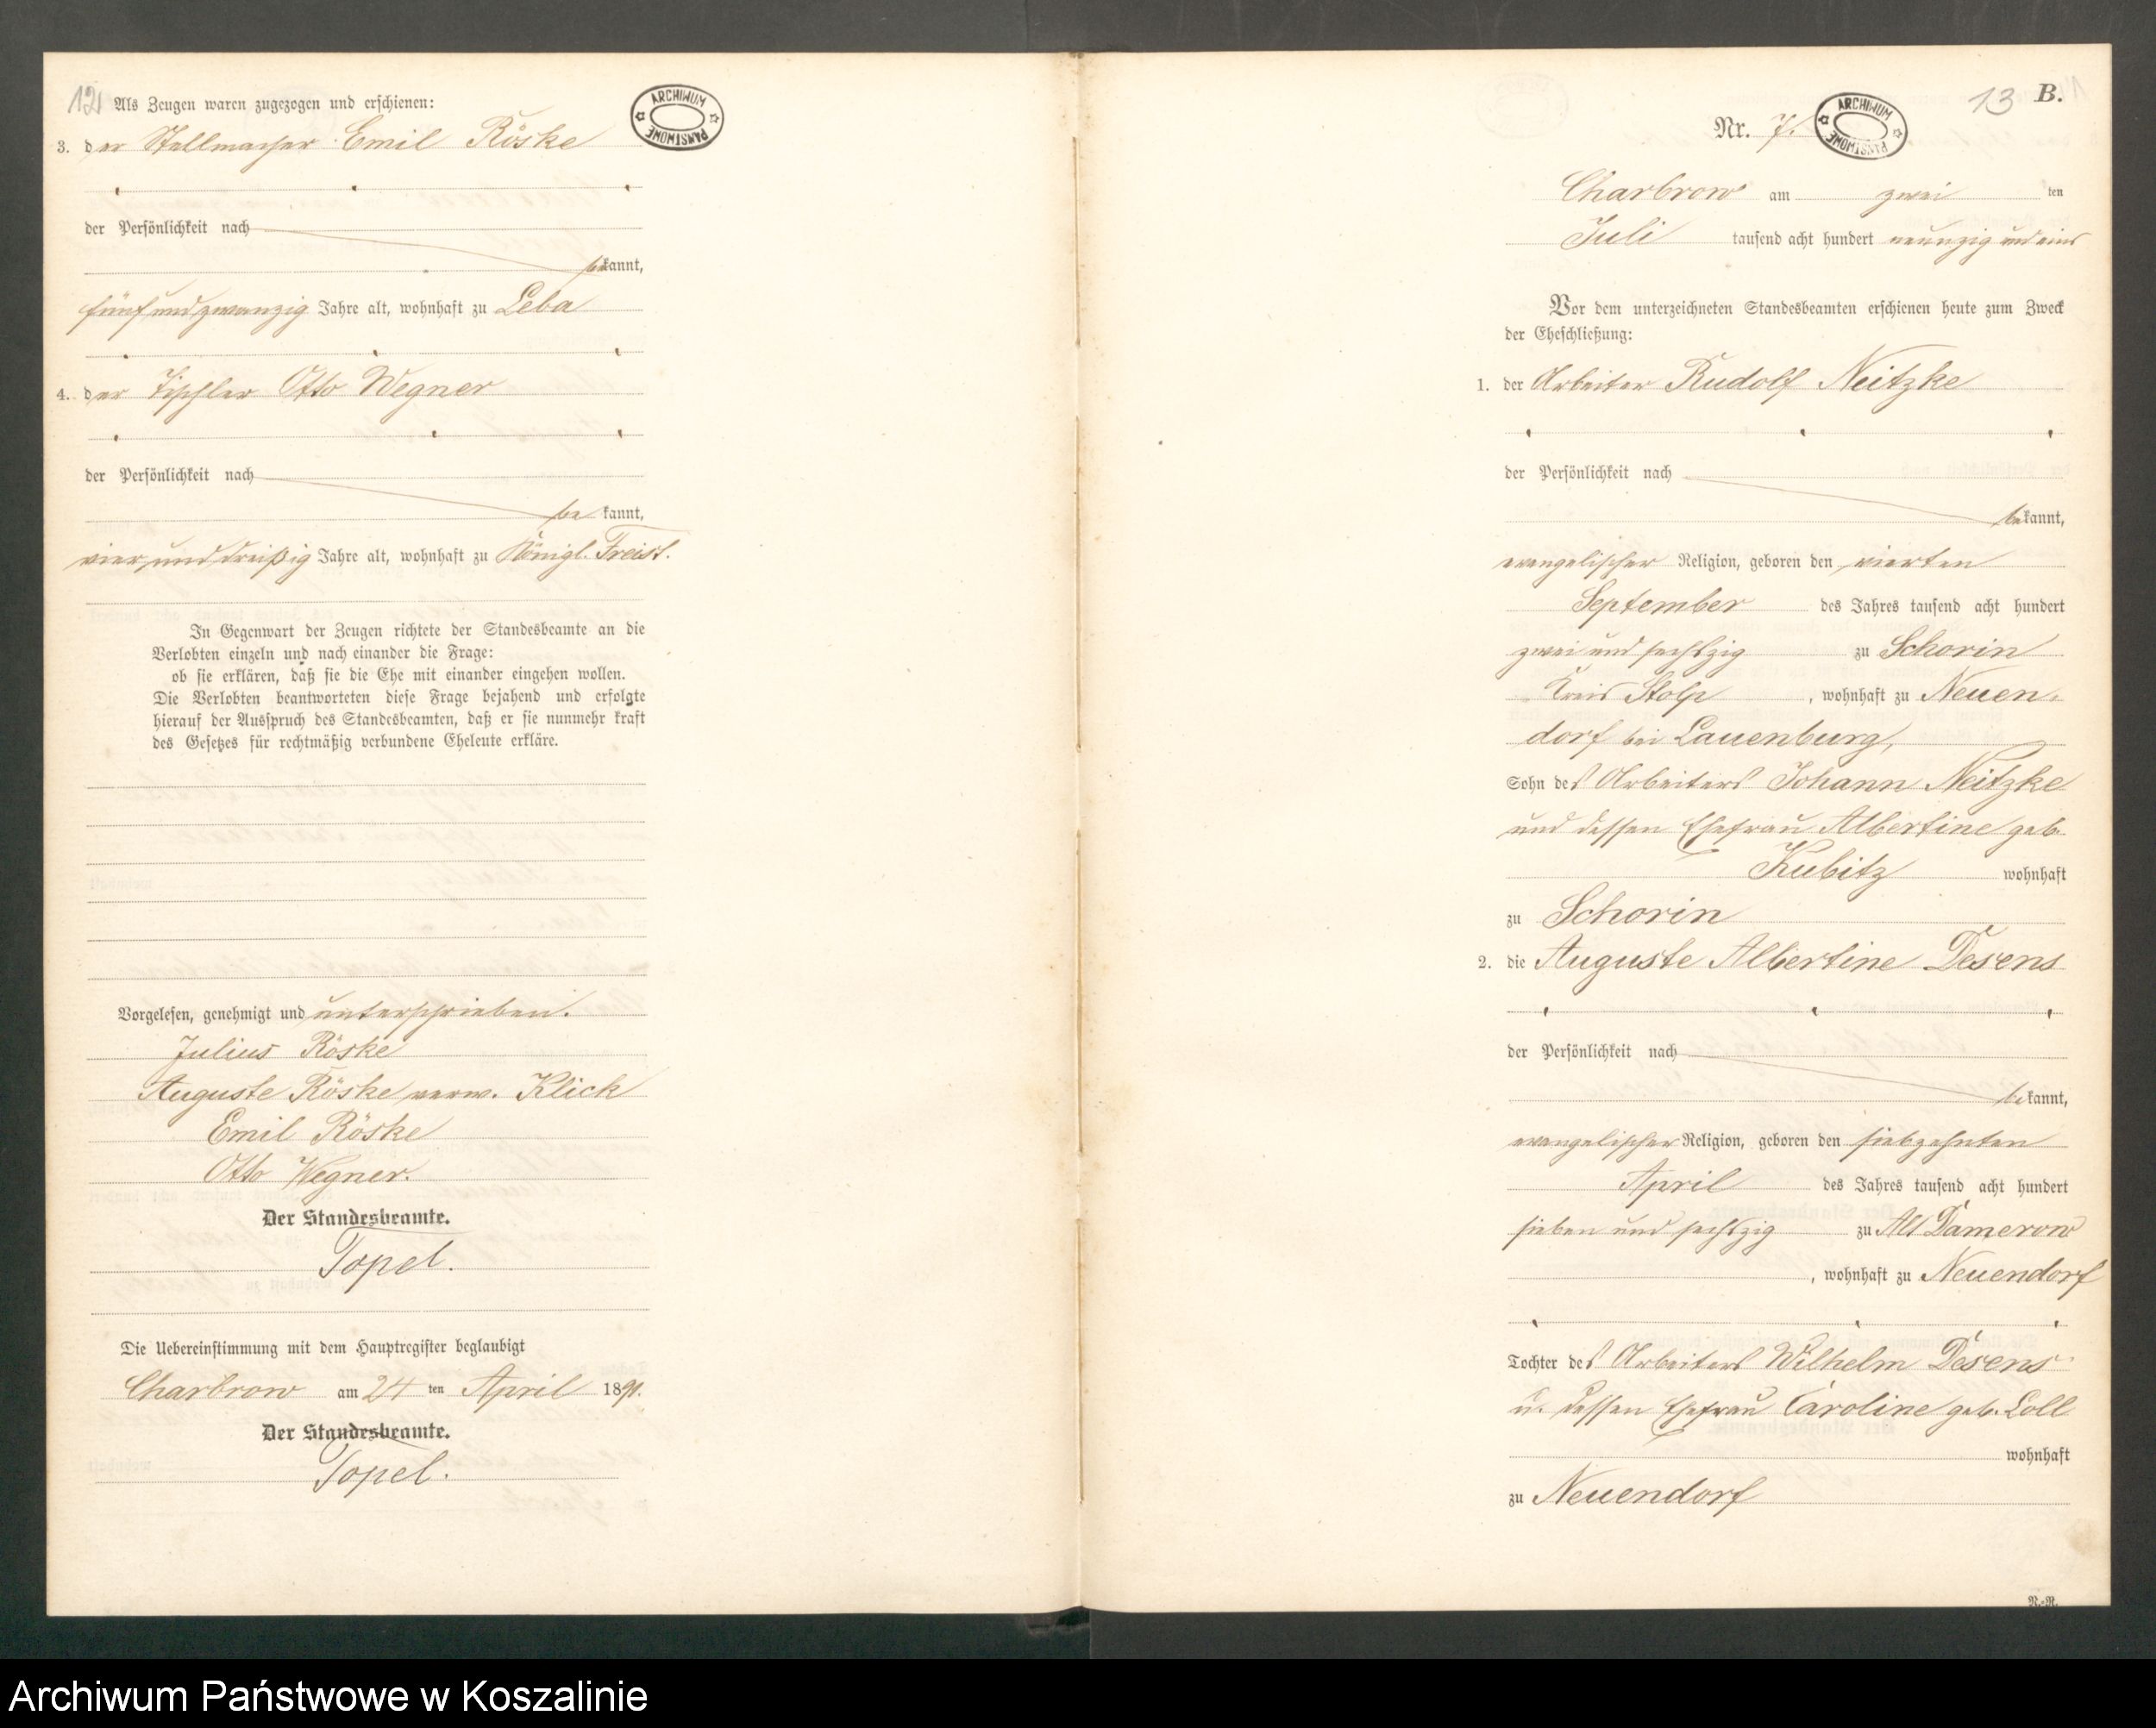 12
Als Zeugen waren zugezogen und erschienen:
ARCHIWUM PAŃSTWOWE
3. der Stellmacher Emil Röske
der Persönlichkeit nach
bekannt,
fünf und zwanzig Jahre alt, wohnhaft zu Leba
4. der Tischler Otto Wegner
der Persönlichkeit nach
be kannt,
vier und dreißig Jahre alt, wohnhaft zu Königl. Freist.
In Gegenwart der Zeugen richtete der Standesbeamte an die
Verlobten einzeln und nach einander die Frage:
ob sie erklären, daß sie die Ehe mit einander eingehen wollen.
Die Verlobten beantworteten diese Frage bejahend und erfolgte
hierauf der Ausspruch des Standesbeamten, daß er sie nunmehr kraft
des Gesetzes für rechtmäßig verbundene Eheleute erkläre.
Vorgelesen, genehmigt und unterschrieben.
Julius Röske
Auguste Röske verw. Klick
Emil Röske
Otto Wegner.
Der Standesbeamte.
Topel.
Die Uebereinstimmung mit dem Hauptregister beglaubigt
Charbrow am 24 ten April 1891.
Der Standesbeamte.
Topel.
13 B.
Nr. 7.
ARCHIWUM PAŃSTWOWE
Charbrow am zwei ten
Juli tausend acht hundert neunzig und eins
Vor dem unterzeichneten Standesbeamten erschienen heute zum Zweck
der Eheschließung:
1. der Arbeiter Rudolf Neitzke
der Persönlichkeit nach
bekannt,
evangelischer Religion, geboren den vierten
September des Jahres tausend acht hundert
zwei und sechszig zu Schorin
Kreis Stolp, wohnhaft zu Neuen-
dorf bei Lauenburg,
Sohn des Arbeiters Johann Neitzke
und dessen Ehefrau Albertine geb.
Kubitz wohnhaft
zu Schorin
2. die Auguste Albertine Desens
der Persönlichkeit nach
bekannt,
evangelischer Religion, geboren den siebzehnten
April des Jahres tausend acht hundert
sieben und sechszig zu Alt Damerow
, wohnhaft zu Neuendorf
Tochter des Arbeiters Wilhelm Desens
u. dessen Ehefrau Caroline geb. Loll
wohnhaft
zu Neuendorf
N.-R.
Archiwum Państwowe w Koszalinie